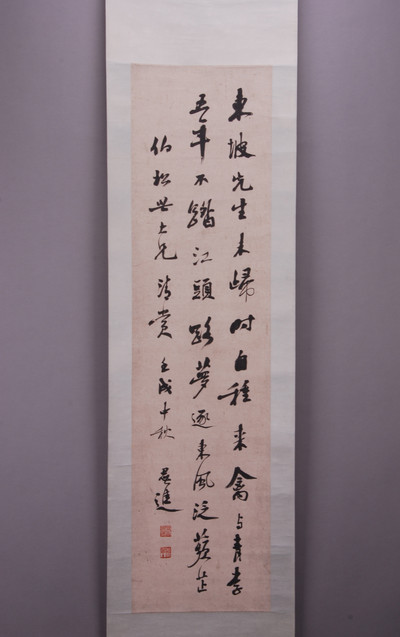 東坡先生未歸時自種来禽与青李
五年不踏江頭路夢逐東風泛蘋芷
伯松世大兄清賞 壬戌中秋 君進